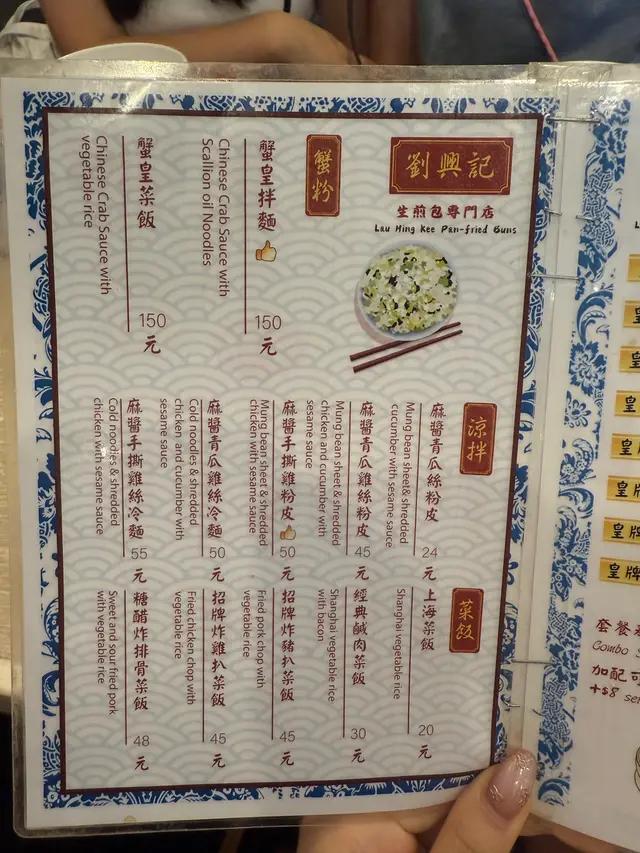 劉興記
生煎包專門店
Lau Hing Kee Pan-fried Buns
蟹粉
蟹皇拌麵
Chinese Crab Sauce with
Scallion oil Noodles
150
元
蟹皇菜飯
Chinese Crab Sauce with
vegetable rice
150
元
涼拌
麻醬青瓜絲粉皮
Mung bean sheet&shredded
cucumber with sesame sauce
24
元
麻醬青瓜雞絲粉皮
Mung bean sheet & shredded
chicken and cucumber with
sesame sauce
45
元
麻醬手撕雞粉皮
Mung bean sheet & shredded
chicken with sesame sauce
50
元
麻醬青瓜雞絲冷麵
Cold noodles & shredded
chicken and cucumber with
sesame sauce
50
元
麻醬手撕雞絲冷麵
Cold noodles & shredded
chicken with sesame sauce
55
元
菜飯
上海菜飯
Shanghai vegetable rice
20
元
經典鹹肉菜飯
Shanghai vegetable rice
with bacon
30
元
招牌炸豬扒菜飯
Fried pork chop with
vegetable rice
45
元
招牌炸雞扒菜飯
Fried chicken chop with
vegetable rice
45
元
糖醋炸排骨菜飯
Sweet and sour fried pork
with vegetable rice
48
元
皇
皇
皇
皇
皇牌
皇牌
皇牌
皇牌
套餐
Combo
加配可
+$8